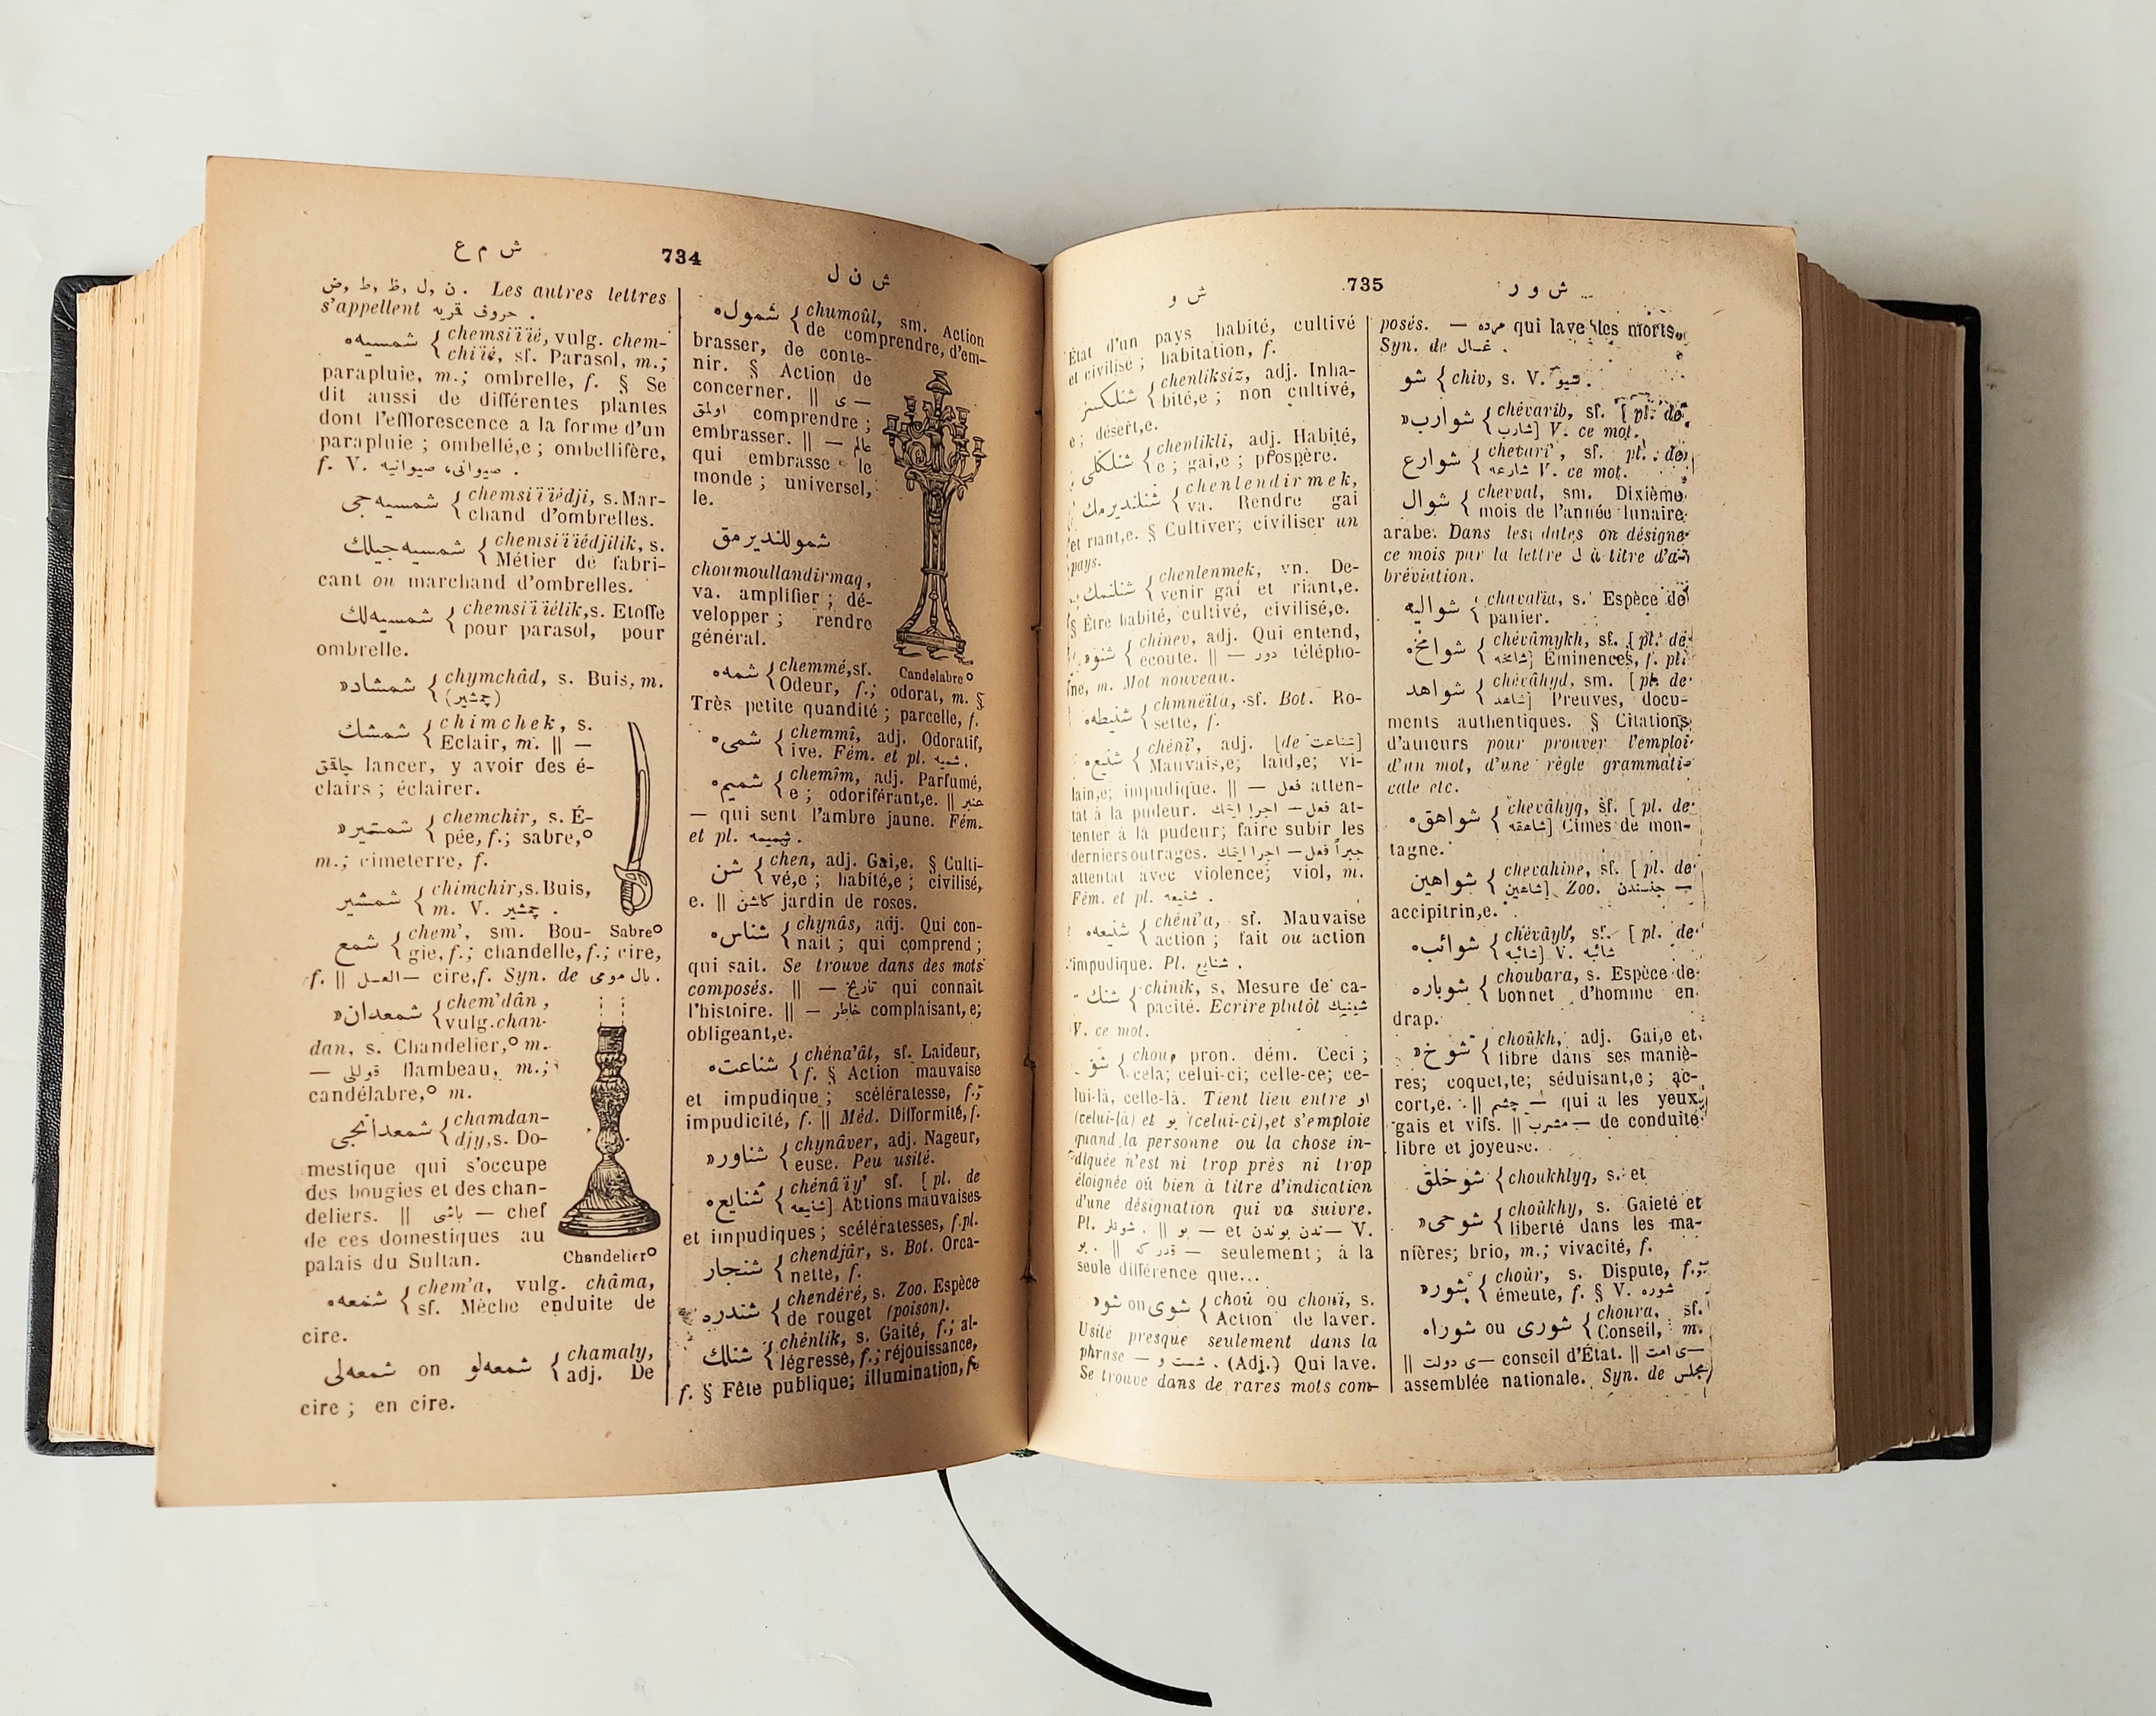 ش م ع
734
ش ن ل
ض, ط, ظ, ل, ن . Les autres lettres
s'appellent حروف قريه .
شمسيه° { chemsiïïé, vulg. chem-
chiïé, sf. Parasol, m.;
parapluie, m.; ombrelle, f. § Se
dit aussi de différentes plantes
dont l'efflorescence a la forme d'un
parapluie ; ombellé,e ; ombellifère,
f. V. صيوانى، صيوانيه .
شمسيه جى { chemsiïïédji, s. Mar-
chand d'ombrelles.
شمسيه جيلك { chemsiïïédjilik, s.
Métier de fabri-
cant ou marchand d'ombrelles.
شمسيه لك { chemsiïïélik, s. Etoffe
pour parasol, pour
ombrelle.
شمشاد» { chymchâd, s. Buis, m.
(چمشير)
شمشك { chimchek, s.
Eclair, m. || —
چاقق lancer, y avoir des é-
clairs ; éclairer.
شمشير» { chemchir, s. É-
pée, f.; sabre,°
m.; cimeterre, f.
شمشير { chimchir, s. Buis,
m. V. چمشير .
Sabre°
شمع { chem', sm. Bou-
gie, f.; chandelle, f.; cire,
f. || العسل— cire, f. Syn. de بال مومى .
شمعدان» { chem'dân ,
vulg. chan-
dan, s. Chandelier,° m.
— قوللى flambeau, m.;
candélabre,° m.
شمعدانجى { chamdan-
djy, s. Do-
mestique qui s'occupe
des bougies et des chan-
deliers. || باشى — chef
de ces domestiques au
palais du Sultan.
Chandelier°
شمعه° { chem'a, vulg. châma,
sf. Mèche enduite de
cire.
شمعه لى ou شمعه لو { chamaly,
adj. De
cire ; en cire.
شمول° { chumoûl, sm. Action
de comprendre, d'em-
brasser, de conte-
nir. § Action de
concerner. || ى —
اولمق comprendre ;
embrasser. || — عالم
qui embrasse le
monde ; universel,
le.
شموللنديرمق
choumoullandirmaq,
va. amplifier ; dé-
velopper ; rendre
général.
Candelabre°
شمه° { chemmé, sf.
Odeur, f.; odorat, m. §
Très petite quantité ; parcelle, f.
شمى° { chemmî, adj. Odoratif,
ive. Fém. et pl. شميه .
شميم° { chemîm, adj. Parfumé,
e ; odoriférant,e. || عنبر
— qui sent l'ambre jaune. Fém.
et pl. شميمه .
شن { chen, adj. Gai,e. § Culti-
vé,e ; habité,e ; civilisé,
e. || كلشن jardin de roses.
شناس° { chynâs, adj. Qui con-
nait ; qui comprend ;
qui sait. Se trouve dans des mots
composés. || — تاريخ qui connait
l'histoire. || — خاطر complaisant,e;
obligeant,e.
شناعت° { chéna'ât, sf. Laideur,
f. § Action mauvaise
et impudique ; scélératesse, f.;
impudicité, f. || Méd. Difformité, f.
شناور» { chynâver, adj. Nageur,
euse. Peu usité.
شنايع° { chénâïy' sf. [ pl. de
شنايعه] Actions mauvaises
et impudiques ; scélératesses, f. pl.
شنجار { chendjâr, s. Bot. Orca-
nette, f.
شندره { chendéré, s. Zoo. Espèce
de rouget (poison).
شنلك { chénlik, s. Gaité, f.; al-
légresse, f.; réjouissance,
f. § Fête publique; illumination, f.
ش و
735
ش و ر
État d'un pays habité, cultivé
et civilisé ; habitation, f.
شنلكسز { chenliksiz, adj. Inha-
bité,e ; non cultivé,
e ; désert,e.
شنلكلى { chenlikli, adj. Habité,
e ; gai,e ; prospère.
شنلنديرمك { chenlendirmek,
va. Rendre gai
et riant,e. § Cultiver; civiliser un
pays.
شنلنمك { chenlenmek, vn. De-
venir gai et riant,e.
§ Être habité, cultivé, civilisé,e.
شنو» { chinev, adj. Qui entend,
ecoute. || — دور télépho-
ne, m. Mot nouveau.
شنيطه° sf. Bot. Ro-
sette, f.
شنيع° { chéni', adj. [de شناعت]
Mauvais,e; laid,e; vi-
lain,e; impudique. || — فعل atten-
tat à la pudeur. فعل — اجرا ايتمك at-
tenter à la pudeur; faire subir les
derniers outrages. جبراً فعل — اجرا ايتمك
attentat avec violence; viol, m.
Fém. et pl. شنيعه .
شنيعه° { chéni'a, sf. Mauvaise
action ; fait ou action
impudique. Pl. شنايع .
شنك { chinik, s. Mesure de ca-
pacité. Ecrire plutôt شينيك
V. ce mot.
شو { chou, pron. dém. Ceci ;
cela; celui-ci; celle-ce; ce-
lui-là, celle-là. Tient lieu entre او
(celui-là) et بو (celui-ci), et s'emploie
quand la personne ou la chose in-
diquée n'est ni trop près ni trop
éloignée où bien à titre d'indication
d'une désignation qui va suivre.
Pl. شونلر . || بو — et ندن بوندن — V.
بو . || قدر كه — seulement ; à la
seule différence que...
شو» ou شوى { choû ou chouï, s.
Action de laver.
Usité presque seulement dans la
phrase — شست و . (Adj.) Qui lave.
Se trouve dans de rares mots com-
posés. — مرده qui lave les morts.
Syn. de غسال .
شو { chiv, s. V. شيو .
شوارب» { chévarib, sf. [ pl. de
شارب] V. ce mot.
شوارع { sf. pl. de
شارعه V. ce mot.
شوال { chevval, sm. Dixième
mois de l'année lunaire
arabe. Dans les dates on désigne
ce mois par la lettre ل à titre d'a-
bréviation.
شواليه { chavalïa, s. Espèce de
panier.
شوامخ° { chévâmykh, sf. [ pl. de
شامخه] Eminences, f. pl.
شواهد { chévâhyd, sm. [ pl. de
شاهد] Preuves, docu-
ments authentiques. § Citations
d'auteurs pour prouver l'emploi
d'un mot, d'une règle grammati-
cale etc.
شواهق° { chevâhyq, sf. [ pl. de
شاهقه] Cimes de mon-
tagne.
شواهين { chevahine, sf. [ pl. de
شاهين] Zoo. جنسندن —
accipitrin,e.
شوائب° { chévâyb, sf. [ pl. de
شائبه] V. شائبه
شوباره { choubara, s. Espèce de
bonnet d'homme en
drap.
شوخ» { choûkh, adj. Gai,e et
libre dans ses maniè-
res; coquet,te; séduisant,e; ac-
cort,e. || چشم — qui a les yeux
gais et vifs. || مشرب — de conduite
libre et joyeuse.
شوخلق { choukhlyq, s. et
شوخى» { choûkhy, s. Gaieté et
liberté dans les ma-
nières; brio, m.; vivacité, f.
شور» { choûr, s. Dispute, f.;
émeute, f. § V. شوره
شوراه ou شورى { choura, sf.
Conseil, m.
|| ى دولت— conseil d'État. || ى امت—
assemblée nationale. Syn. de مجلس